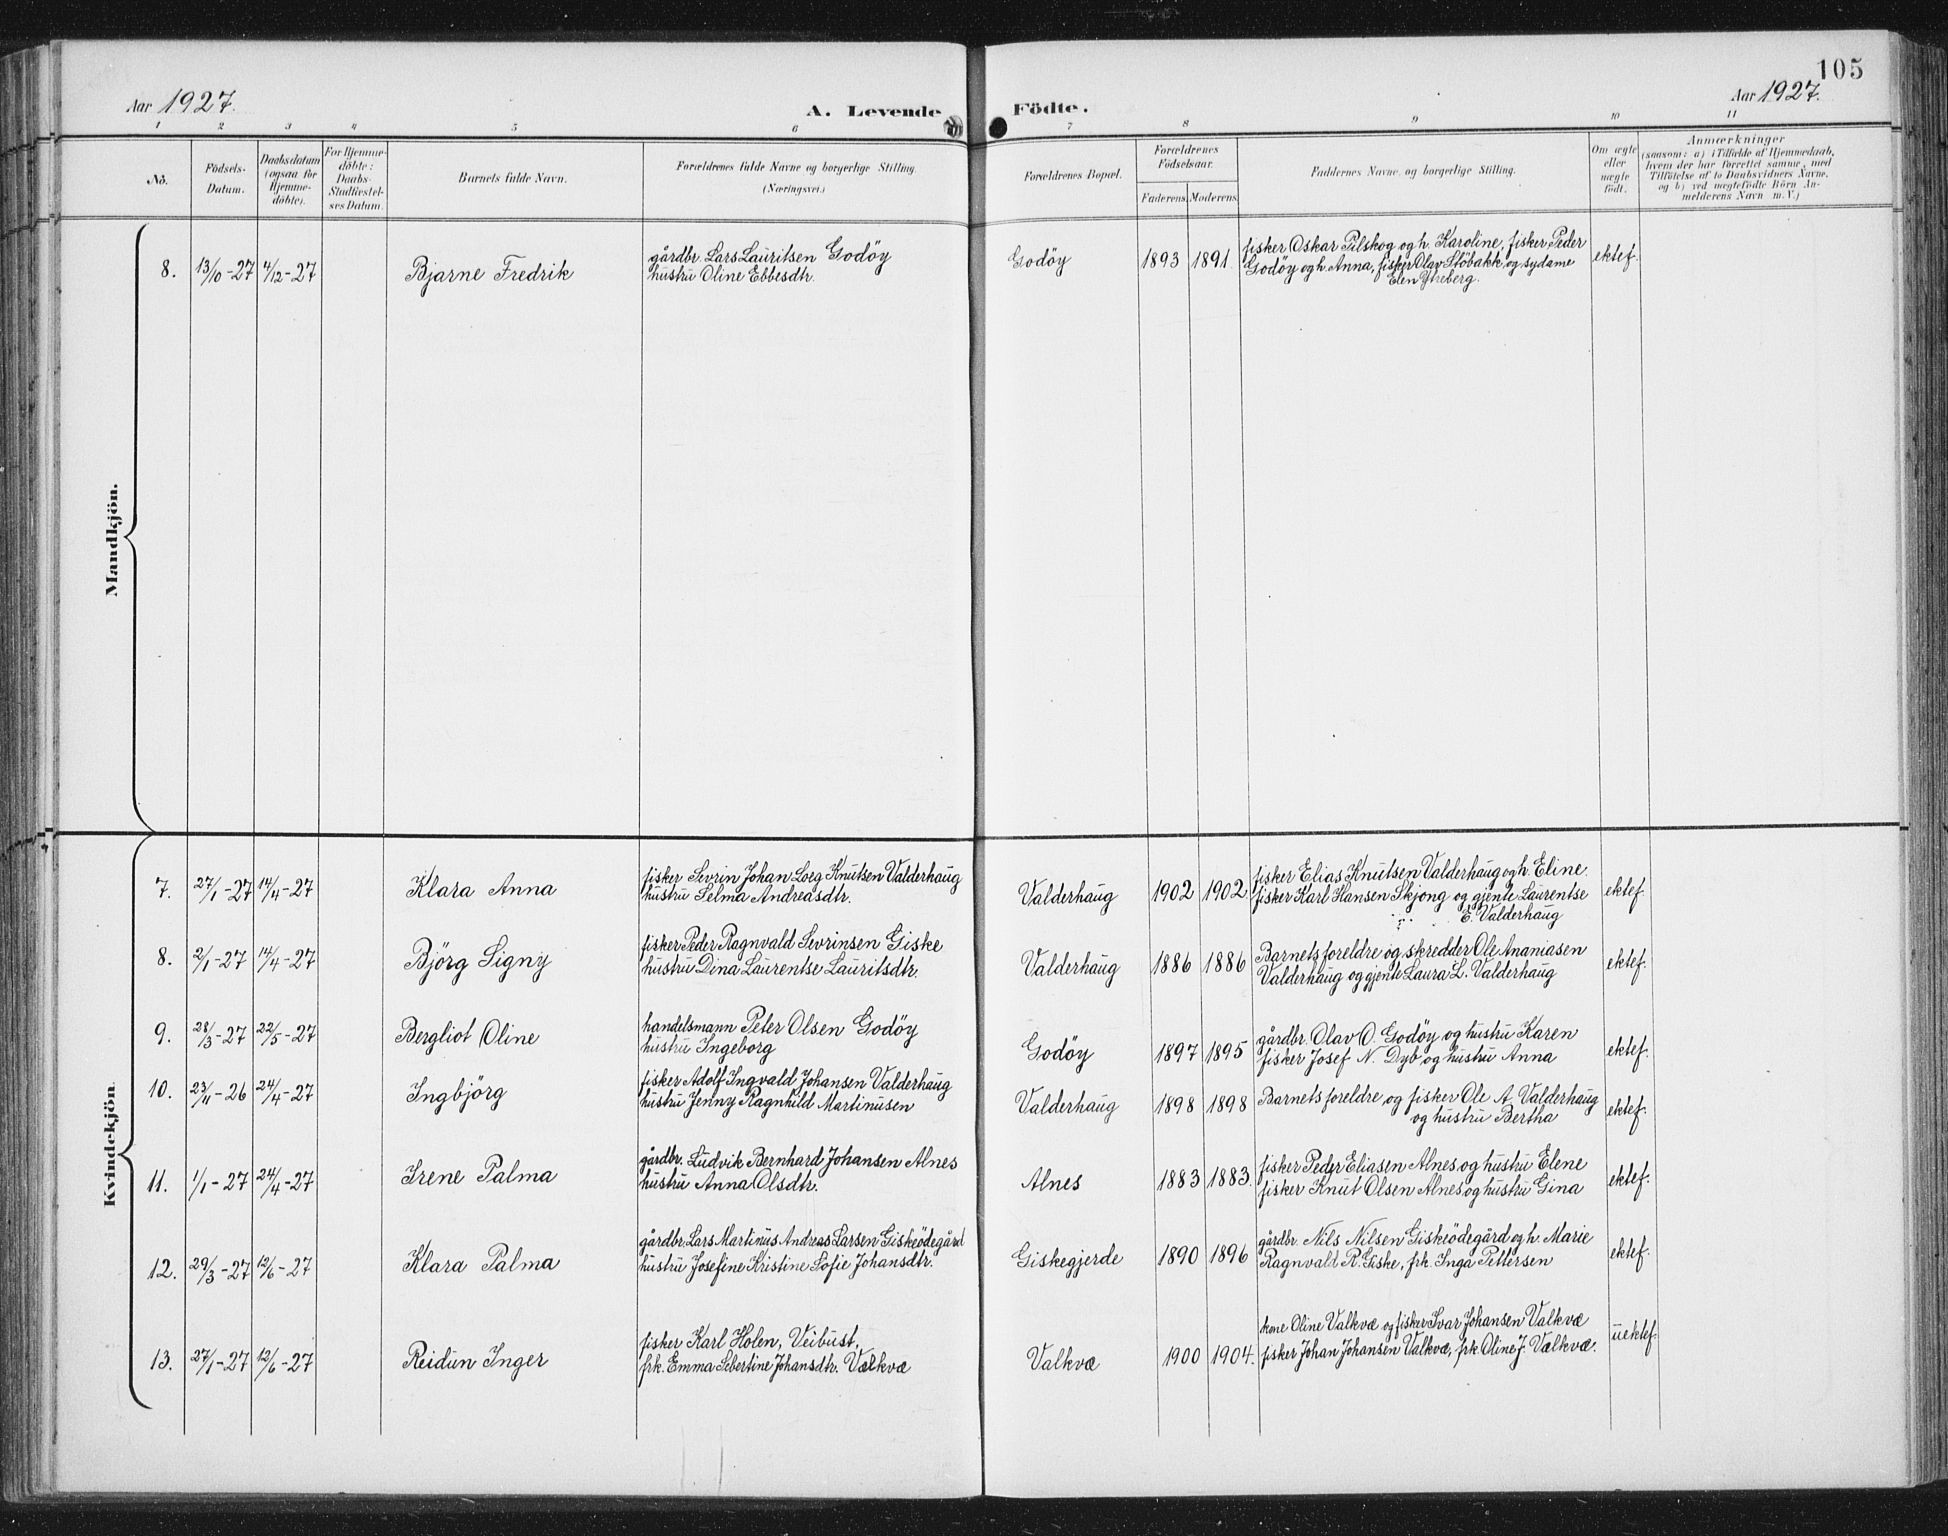 105
Aar 1927.
A. Levende
Födte.
Aar 1927.
1 2 3 4 5 6 7 8 9 10 11
No.
Födsels-
Datum.
Daabsdatum
(ogsaa for
Hjemme-
döbte).
For Hjemme-
döbte:
Daabs-
Stadfæstel-
ses Datum.
Barnets fulde Navn.
Forældrenes fulde Navne og borgerlige Stilling.
(Næringsvei.)
Forældrenes Bopæl.
Forældrenes
Födselsaar.
Faderens Moderens
Faddernes Navne og borgerlige Stilling.
Om ægte
eller
uægte
födt.
Anmærkninger
(saasom: a) i Tilfælde af Hjemmedaab,
hvem der har forrettet samme, med
Tilföielse af to Daabsvidners Navne,
og b) ved uægtefödte Börn An-
melderens Navn m. V.)
Mandkjön.
8. 13/10-27 4/12-27 Bjarne Fredrik
gårdbr. Lars Lauritsen Godöy
hustru Oline Ebbesdtr.
Godöy 1893 1891
fisker Oskar Pilskog og h. Karoline, fisker Peder
Godöy og h. Anna, fisker Olav Stöbakk, og sydame
Elen Ytreberg.
ektef.
Kvindekjön.
7. 27/1-27 14/4-27 Klara Anna
fisker Sevrin Johan Loeg Knutsen Valderhaug
hustru Selma Andreasdtr.
Valderhaug 1902 1902
fisker Elias Knutsen Valderhaug og h. Eline.
fisker Karl Hansen Skjong og gjente Laurentse
E. Valderhaug
ektef.
8. 2/1-27 14/4-27 Björg Signy
fisker Peder Ragnvald Sevrinsen Giske
hustru Dina Laurentse Lauritsdtr.
Valderhaug 1886 1886
Barnets foreldre og skredder Ole Ananiasen
Valderhaug og gjente Laura L. Valderhaug
ektef.
9. 28/3-27 22/5-27 Bergliot Oline
handelsmann Peter Olsen Godöy
hustru Ingeborg
Godöy 1897 1895
gårdbr. Olav O. Godöy og hustru Karen
fisker Josef N. Dyb og hustru Anna
ektef.
10. 23/11-26 24/4-27 Ingbjörg
fisker Adolf Ingvald Johansen Valderhaug
hustru Jenny Ragnhild Martinusen
Valderhaug 1898 1898
Barnets foreldre og fisker Ole A. Valderhaug
og hustru Bertha
ektef.
11. 1/1-27 24/4-27 Irene Palma
gårdbr. Ludvik Bernhard Johansen Alnes
hustru Anna Olsdtr.
Alnes 1883 1883.
fisker Peder Eliasen Alnes og hustru Elene
fisker Knut Olsen Alnes og hustru Gina
ektef.
12. 29/3-27 12/6-27 Klara Palma
gårdbr. Lars Martinus Andreas Larsen Giskeödegård
hustru Josefine Kristine Sofie Johansdtr.
Giskegjerde 1890 1896
gårdbr. Nils Nilsen Giskeödegård og h. Marie
Ragnvald R. Giske, frk. Inga Pettersen
ektef.
13. 27/1-27 12/6-27 Reidun Inger
fisker Karl Holen, Veibust,
frk. Emma Sebertine Johansdtr. Valkvæ
Valkvæ 1900 1904.
kone Oline Valkvæ og fisker Ivar Johansen Valkvæ
fisker Johan Johansen Valkvæ, frk. Oline J. Valkvæ.
uektef.